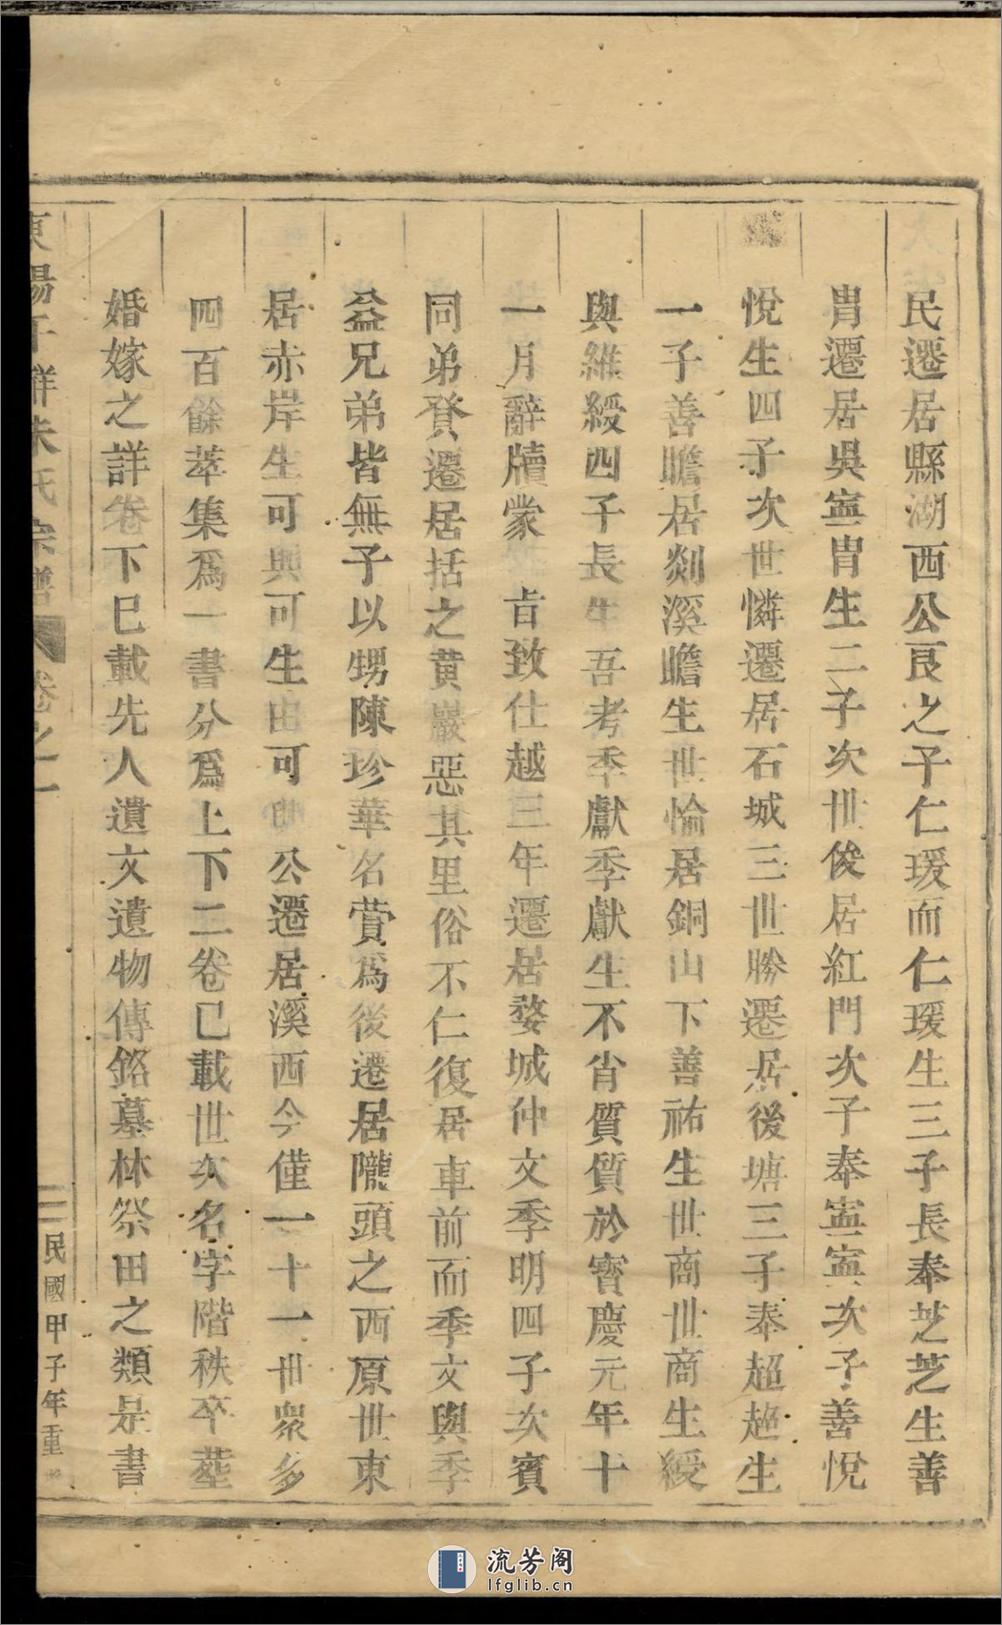 民遷居縣湖西公良之子仁瑗而仁瑗生三子長奉芝芝生善
胄遷居吳寧胄生二子次世俊居紅門次子奉寧寧次子善悅
悅生四子次世憐遷居石城三世勝遷居後塘三子奉超超生
一子善瞻居剡溪瞻生世愉居銅山下善祐生世商世商生綬
與維綬四子長生吾考季獻季獻生不肖質質於寳慶元年十
一月辭牘蒙 㫖致仕越三年遷居婺城仲文季明四子次賓
同弟賛遷居括之黄巖惡其里俗不仁復居車前而季文與季
益兄弟皆無子以甥陳珍華名蕡爲後遷居隴頭之西原世東
居赤岸生可與可生由可 公遷居溪西今僅一十一世衆多
四百餘萃集爲一書分爲上下二卷已載世次名字階秩卒塟
婚嫁之詳卷下巳載先人遺文遺物傳銘墓林祭田之類是書
東陽干祥朱氏宗譜 卷之一 二 民國甲子年重
流芳阁
lfglib.cn